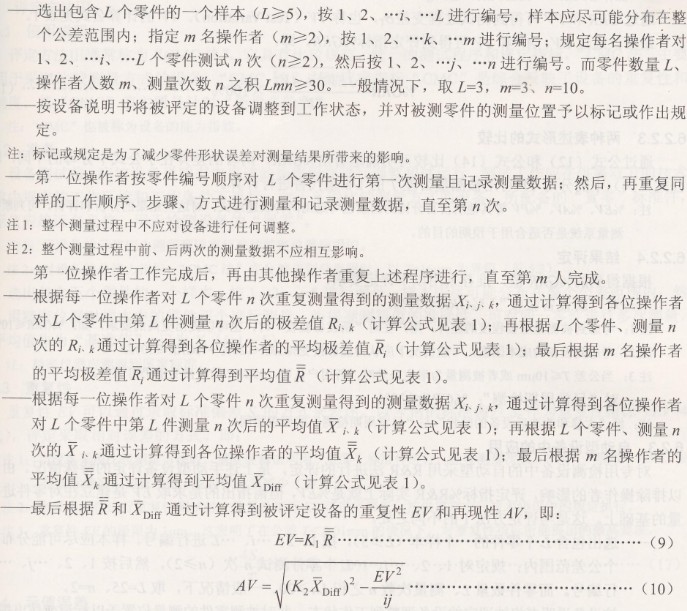 ——选出包含 L 个零件的一个样本（L≥5），按 1、2、…i、…L 进行编号，样本应尽可能分布在整
个公差范围内；指定 m 名操作者（m≥2），按 1、2、…k、…m 进行编号；规定每名操作者对
1、2、…i、…L 个零件测试 n 次（n≥2），然后按 1、2、…j、…n 进行编号。而零件数量 L、
操作者人数 m、测量次数 n 之积 Lmn≥30。一般情况下，取 L=3，m=3、n=10。
——按设备说明书将被评定的设备调整到工作状态，并对被测零件的测量位置予以标记或作出规
定。
注：标记或规定是为了减少零件形状误差对测量结果所带来的影响。
——第一位操作者按零件编号顺序对 L 个零件进行第一次测量且记录测量数据；然后，再重复同
样的工作顺序、步骤、方式进行测量和记录测量数据，直至第 n 次。
注 1：整个测量过程中不应对设备进行任何调整。
注 2：整个测量过程中前、后两次的测量数据不应相互影响。
——第一位操作者工作完成后，再由其他操作者重复上述程序进行，直至第 m 人完成。
——根据每一位操作者对 L 个零件 n 次重复测量得到的测量数据 Xi. j. k，通过计算得到各位操作者
对 L 个零件中第 i 件测量 n 次后的极差值 Ri. k（计算公式见表 1）；再根据 L 个零件、测量 n
次的 Ri. k 通过计算得到各位操作者的平均极差值 R̄i（计算公式见表 1）；最后根据 m 名操作者
的平均极差值 R̄i 通过计算得到平均值 R̿（计算公式见表 1）。
——根据每一位操作者对 L 个零件 n 次重复测量得到的测量数据 Xi. j. k，通过计算得到各位操作者
对 L 个零件中第 i 件测量 n 次后的平均值 X̄ i. k（计算公式见表 1）；再根据 L 个零件、测量 n
次的 X̄ i. k 通过计算得到各位操作者的平均值 X̿k（计算公式见表 1）；最后根据 m 名操作者的
平均值 X̿k 通过计算得到平均值 X̄Diff（计算公式见表 1）。
——最后根据 R̿ 和 X̄Diff 通过计算得到被评定设备的重复性 EV 和再现性 AV，即：
EV=K₁ R̿ ……………………………………（9）
AV = √((K₂X̄Diff)² − EV²/ij) ……………………………………（10）